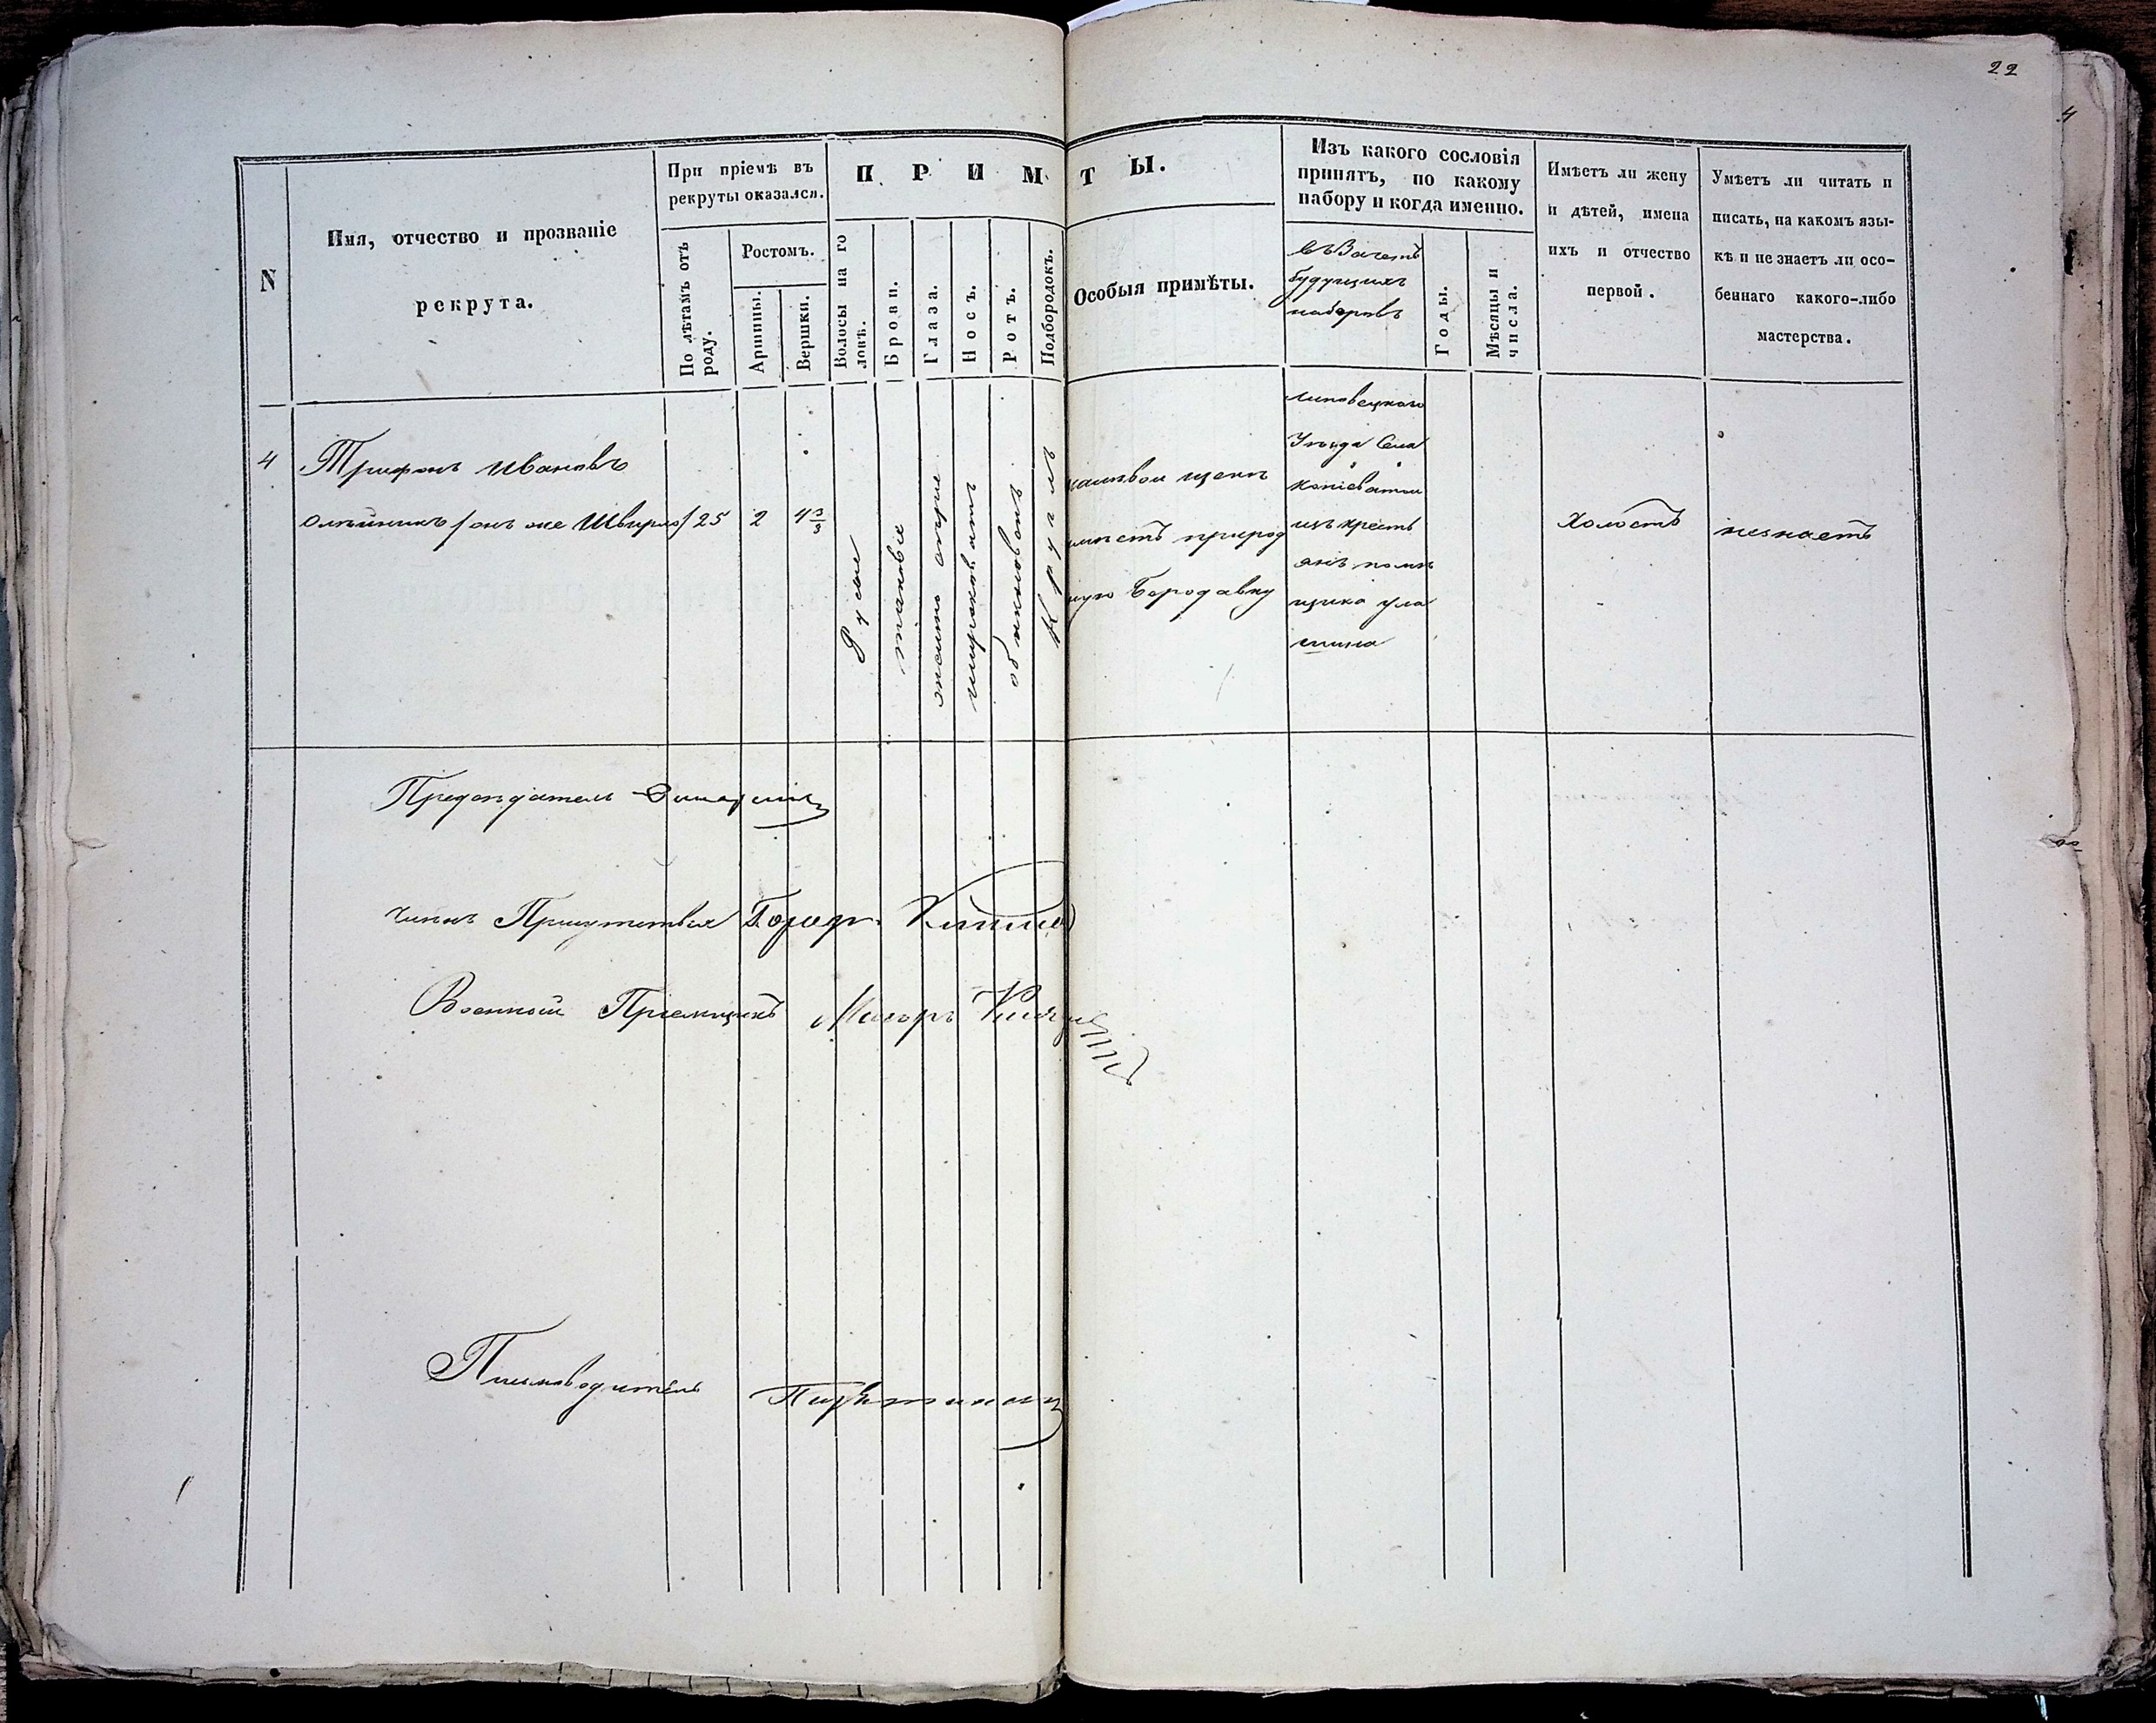 22
4
N
Имя, отчество и прозваніе
рекрута.
При пріемѣ въ
рекруты оказался.
По лѣтамъ отъ
роду.
Ростомъ.
Аршины.
Вершки.
П Р И М Т Ы.
Волосы на го
ловѣ.
Брови.
Глаза.
Носъ.
Ротъ.
Подбородокъ.
Особыя примѣты.
Изъ какого сословія
принятъ, по какому
набору и когда именно.
въ Зачетъ
будущихъ
наборовъ
Годы.
Мѣсяцы и
числа.
Имѣетъ ли жену
и дѣтей, имена
ихъ и отчество
первой.
Умѣетъ ли читать и
писать, на какомъ язы-
кѣ и не знаетъ ли осо-
беннаго какого-либо
мастерства.
4
Трифонъ Ивановъ
Олѣйникъ / онъ же Швыръ /
25
2
4 3/3
Русы
таковыя
желто
широковатъ
обыкновенъ
Круглъ
лѣвой щекѣ
имѣетъ природ
ную Бородавку
Липовецкого
Уѣзда Села
Копіеватой
изъ крестъ
янъ помѣ
щика
холостъ
незнаетъ
Предсѣдатель
Членъ Присутствія Город.
Военной Пріемщикъ Маіоръ
Письмоводитель